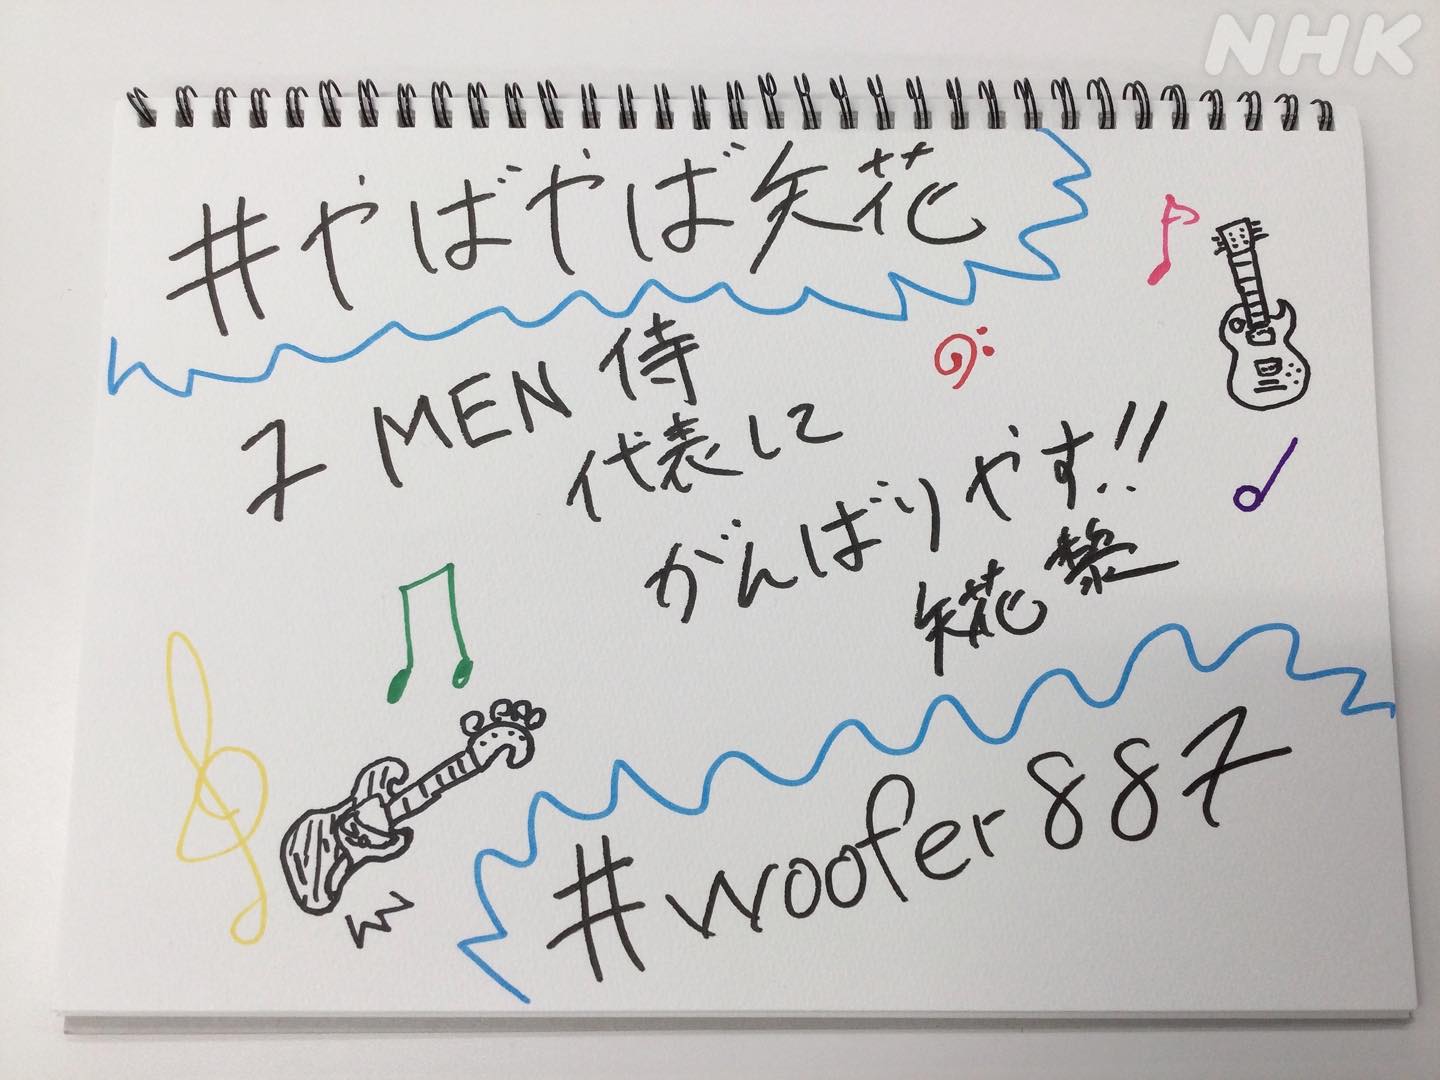 NHK
#やばやば矢花
7 MEN 侍
代表に
がんばりやす!!
矢花 黎
#woofer887